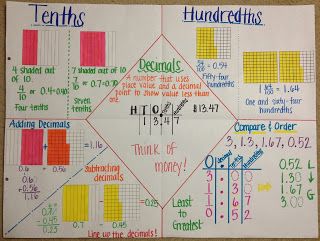 Tenths
Hundredths
4 shaded out
of 10
4/10 or 0.4
Four tenths
7 shaded out
of 10
Seven
tenths
Decimals
A number that uses
place value and a decimal
point to show value less than
one.
H T O
1 3 4 7
$13.47
Think of
money!
54/100 = 0.54
Fifty-four
hundredths
1 64/100 = 1.64
One and sixty-four
hundredths
Adding Decimals
= 1.16
0.6
0.56
0.6
+ 0.56
1.16
Subtracting
decimals
0.7
0.45
= 0.25
0.25
Line up the decimals!
Compare & Order
3, 1.3, 1.67, 0.52
O Tenths Hundredths
3 . 0 0
1 . 3 0
1 . 6 7
0 . 5 2
0.52 L
1.3
1.67
3 G
Least to
Greatest